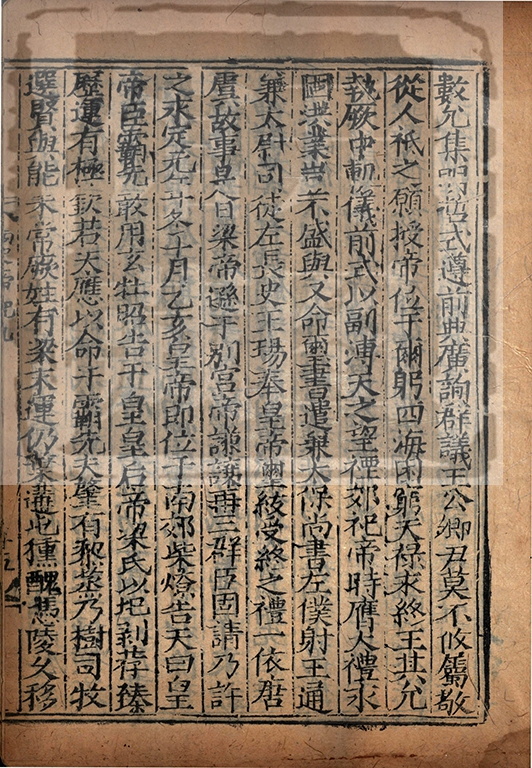 數允集明哲式遵前典廣詢群議王公卿尹莫不攸屬敬
從人祇之願授帝位于爾躬四海困窮天禄永終王其允
執厥中軌儀前式以副溥天之望禋郊祀帝時膺大禮永
固洪業豈不盛與又命璽書遣兼太保尚書左僕射王通
兼太尉司徒左長史王瑒奉皇帝璽紱受終之禮一依唐
虞故事是日梁帝遜于別宮帝謙讓再三群臣固請乃許
之永定元年冬十月乙亥皇帝即位于南郊柴燎告天曰皇
帝臣霸先敢用玄牡昭告于皇皇后帝梁氏以圮剥荐臻
歷運有極欽若天應以命于霸先夫肇有烝蒸乃樹司牧
選賢與能未常厥姓有梁末運仍葉遘屯獯醜憑陵久移